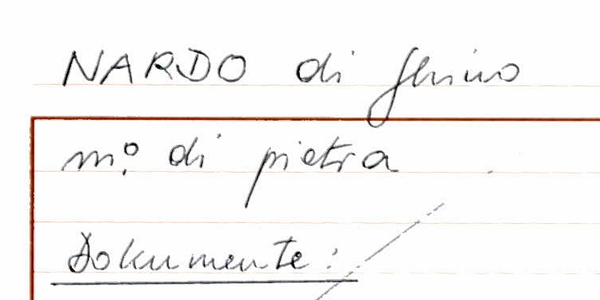 NARDO di Ghino
m.° di pietra
Dokumente: